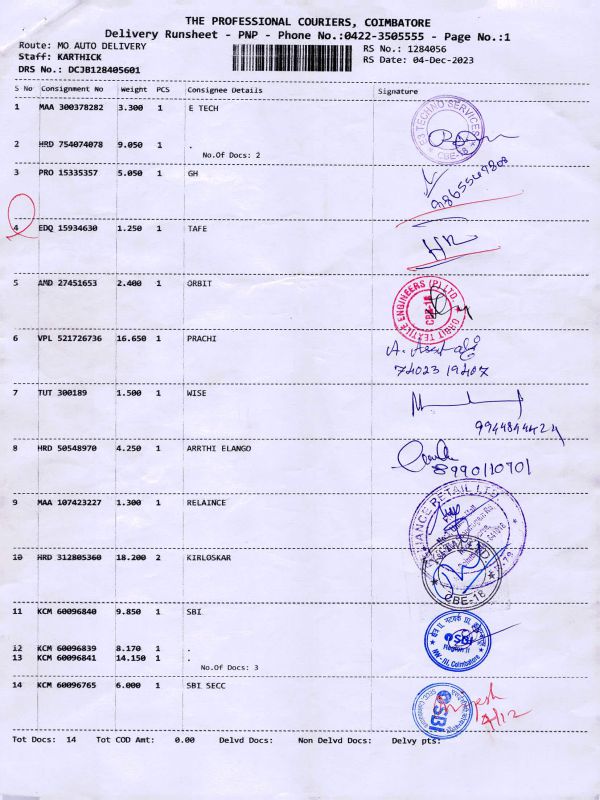 THE PROFESSIONAL COURIERS, COIMBATORE
Delivery Runsheet - PNP - Phone No.:0422-3505555 - Page No.:1
Route: MO AUTO DELIVERY RS No.: 1284056
Staff: KARTHICK RS Date: 04-Dec-2023
DRS No.: DCJB128405601
S No Consignment No Weight PCS Consignee Details Signature
1 MAA 300378282 3.300 1 E TECH
2 HRD 754074078 9.050 1 .
No.Of Docs: 2
CBE-18
3 PRO 15335357 5.050 1 GH
4 EDQ 15934630 1.250 1 TAFE
5 AMD 27451653 2.400 1 ORBIT
ORBIT TEXTILE ENGINEERS (P) LTD. CBE-18
6 VPL 521726736 16.650 1 PRACHI
74023 19407
7 TUT 300189 1.500 1 WISE
8 HRD 50548970 4.250 1 ARRTHI ELANGO
8990110701
9 MAA 107423227 1.300 1 RELAINCE
10 HRD 312805360 18.200 2 KIRLOSKAR
CBE-18
11 KCM 60096840 9.850 1 SBI
SBI
Region II
12 KCM 60096839 8.170 1 .
13 KCM 60096841 14.150 1 .
No.Of Docs: 3
14 KCM 60096765 6.000 1 SBI SECC
SBI
4/12
Tot Docs: 14 Tot COD Amt: 0.00 Delvd Docs: Non Delvd Docs: Delvy pts: